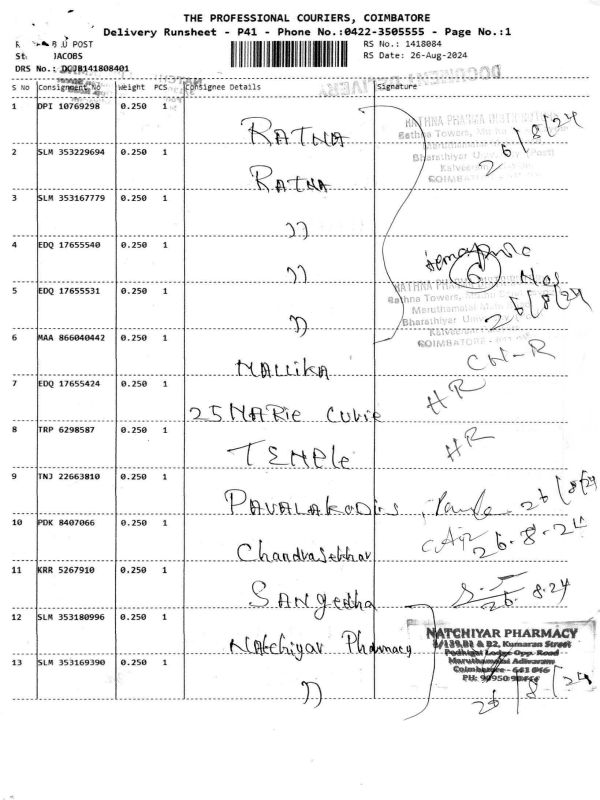 THE PROFESSIONAL COURIERS, COIMBATORE
Delivery Runsheet - P41 - Phone No.:0422-3505555 - Page No.:1
U POST
RS No.: 1418084
JACOBS
RS Date: 26-Aug-2024
DRS No.: DCJB141808401
S No Consignment No Weight PCS Consignee Details Signature
1 DPI 10769298 0.250 1 RATNA 26/8/24
2 SLM 353229694 0.250 1 RATNA
3 SLM 353167779 0.250 1 ))
4 EDQ 17655540 0.250 1 )) 6 Nos
5 EDQ 17655531 0.250 1 )) 26/8/24
6 MAA 866040442 0.250 1 MALLIKA CH-R
7 EDQ 17655424 0.250 1 25 MARIE CURIE HR
8 TRP 6298587 0.250 1 TEMPLE HR
9 TNJ 22663810 0.250 1 PAVALAKODIS 26/8/24
10 PDK 8407066 0.250 1 Chandrasekhar 26-8-24
11 KRR 5267910 0.250 1 SANgeetha 26.8.24
12 SLM 353180996 0.250 1 Natchiyar Pharmacy
NATCHIYAR PHARMACY
& B2, Kumaran Street
Lodge Opp. Road
Maruthamalai Adivaram
Coimbatore - 641 046
13 SLM 353169390 0.250 1 ))
26/8/24